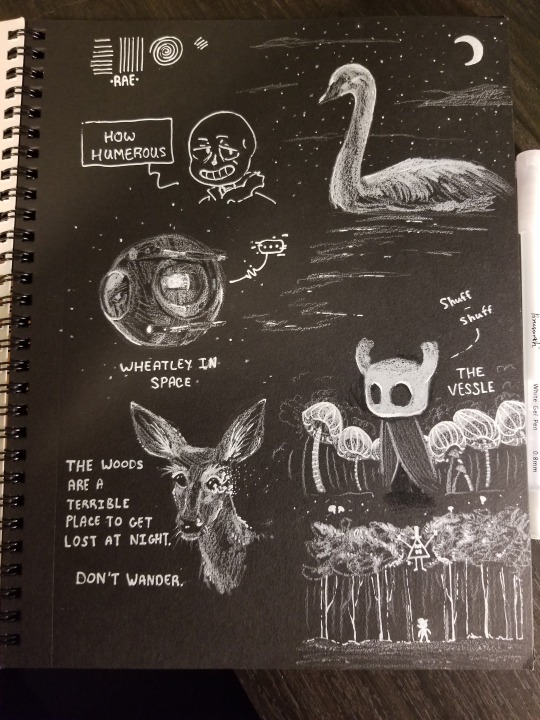 ·RAE·
HOW
HUMEROUS
WHEATLEY IN
SPACE
Shuff
Shuff
THE
VESSLE
THE WOODS
ARE A
TERRIBLE
PLACE TO GET
LOST AT NIGHT.
DON'T WANDER.
White Gel Pen
0.8mm